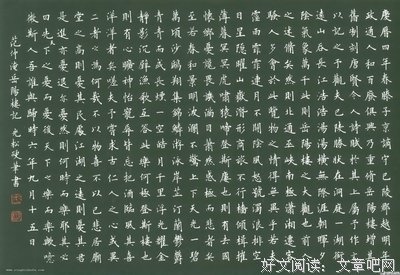 慶曆四年春滕子京謫守巴陵郡越明年
政通人和百廢俱興乃重修岳陽樓增其
舊制刻唐賢今人詩賦於其上屬予作文
以記之予觀夫巴陵勝狀在洞庭一湖銜
遠山吞長江浩浩湯湯橫無際涯朝暉夕
陰氣象萬千此則岳陽樓之大觀也前人
之述備矣然則北通巫峽南極瀟湘遷客
騷人多會於此覽物之情得無異乎若夫
霪雨霏霏連月不開陰風怒號濁浪排空
日星隱曜山岳潛形商旅不行檣傾楫摧
薄暮冥冥虎嘯猿啼登斯樓也則有去國
懷鄉憂讒畏譏滿目蕭然感極而悲者矣
至若春和景明波瀾不驚上下天光一碧
萬頃沙鷗翔集錦鱗游泳岸芷汀蘭鬱鬱
青青而或長煙一空皓月千里浮光耀金
靜影沉璧漁歌互答此樂何極登斯樓也
則有心曠神怡寵辱皆忘把酒臨風其喜
洋洋者矣嗟夫予嘗求古仁人之心或異
二者之為何哉不以物喜不以己悲居廟
堂之高則憂其民處江湖之遠則憂其君
是進亦憂退亦憂然則何時而樂耶其必
曰先天下之憂而憂後天下之樂而樂歟噫
微斯人吾誰與歸時六年九月十五日
范仲淹岳陽樓記 光松硬筆書
好文阅读：文章吧网